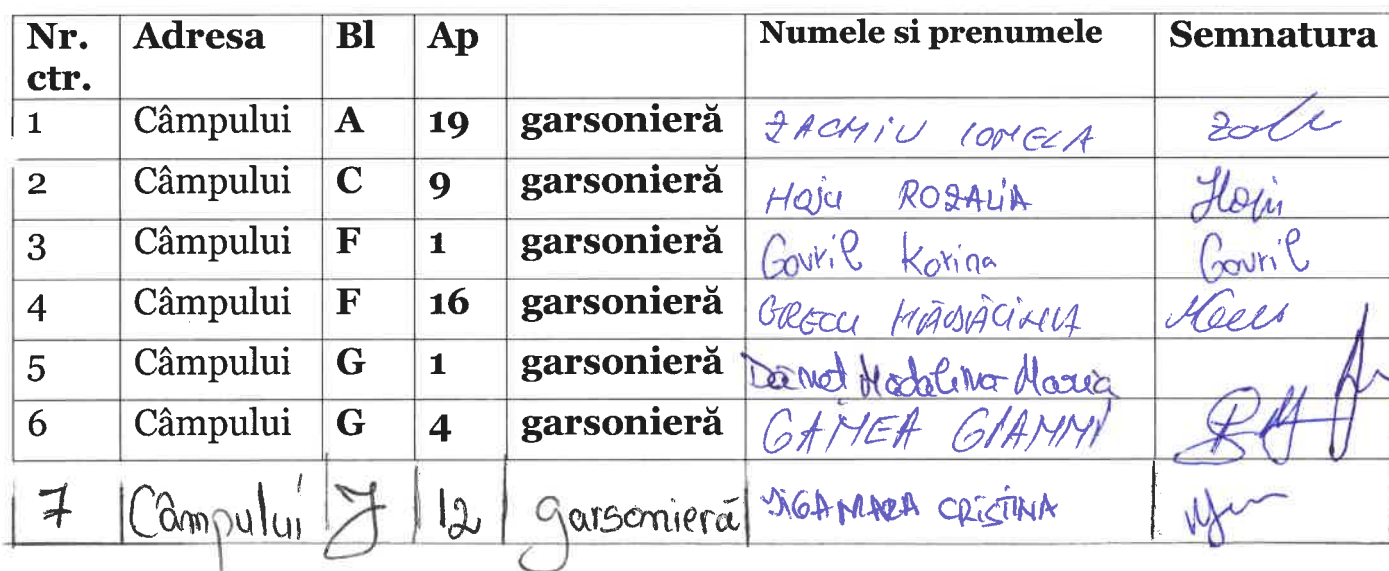 Nr. ctr. Adresa Bl Ap Numele si prenumele Semnatura
1 Câmpului A 19 garsonieră ZACMIU IONELA
2 Câmpului C 9 garsonieră Haju ROZALIA
3 Câmpului F 1 garsonieră Gavril Korina Gavril
4 Câmpului F 16 garsonieră GRECU
5 Câmpului G 1 garsonieră Madalina Maria
6 Câmpului G 4 garsonieră GAMEA GIAMMI
7 Câmpului J 12 garsonieră CRISTINA